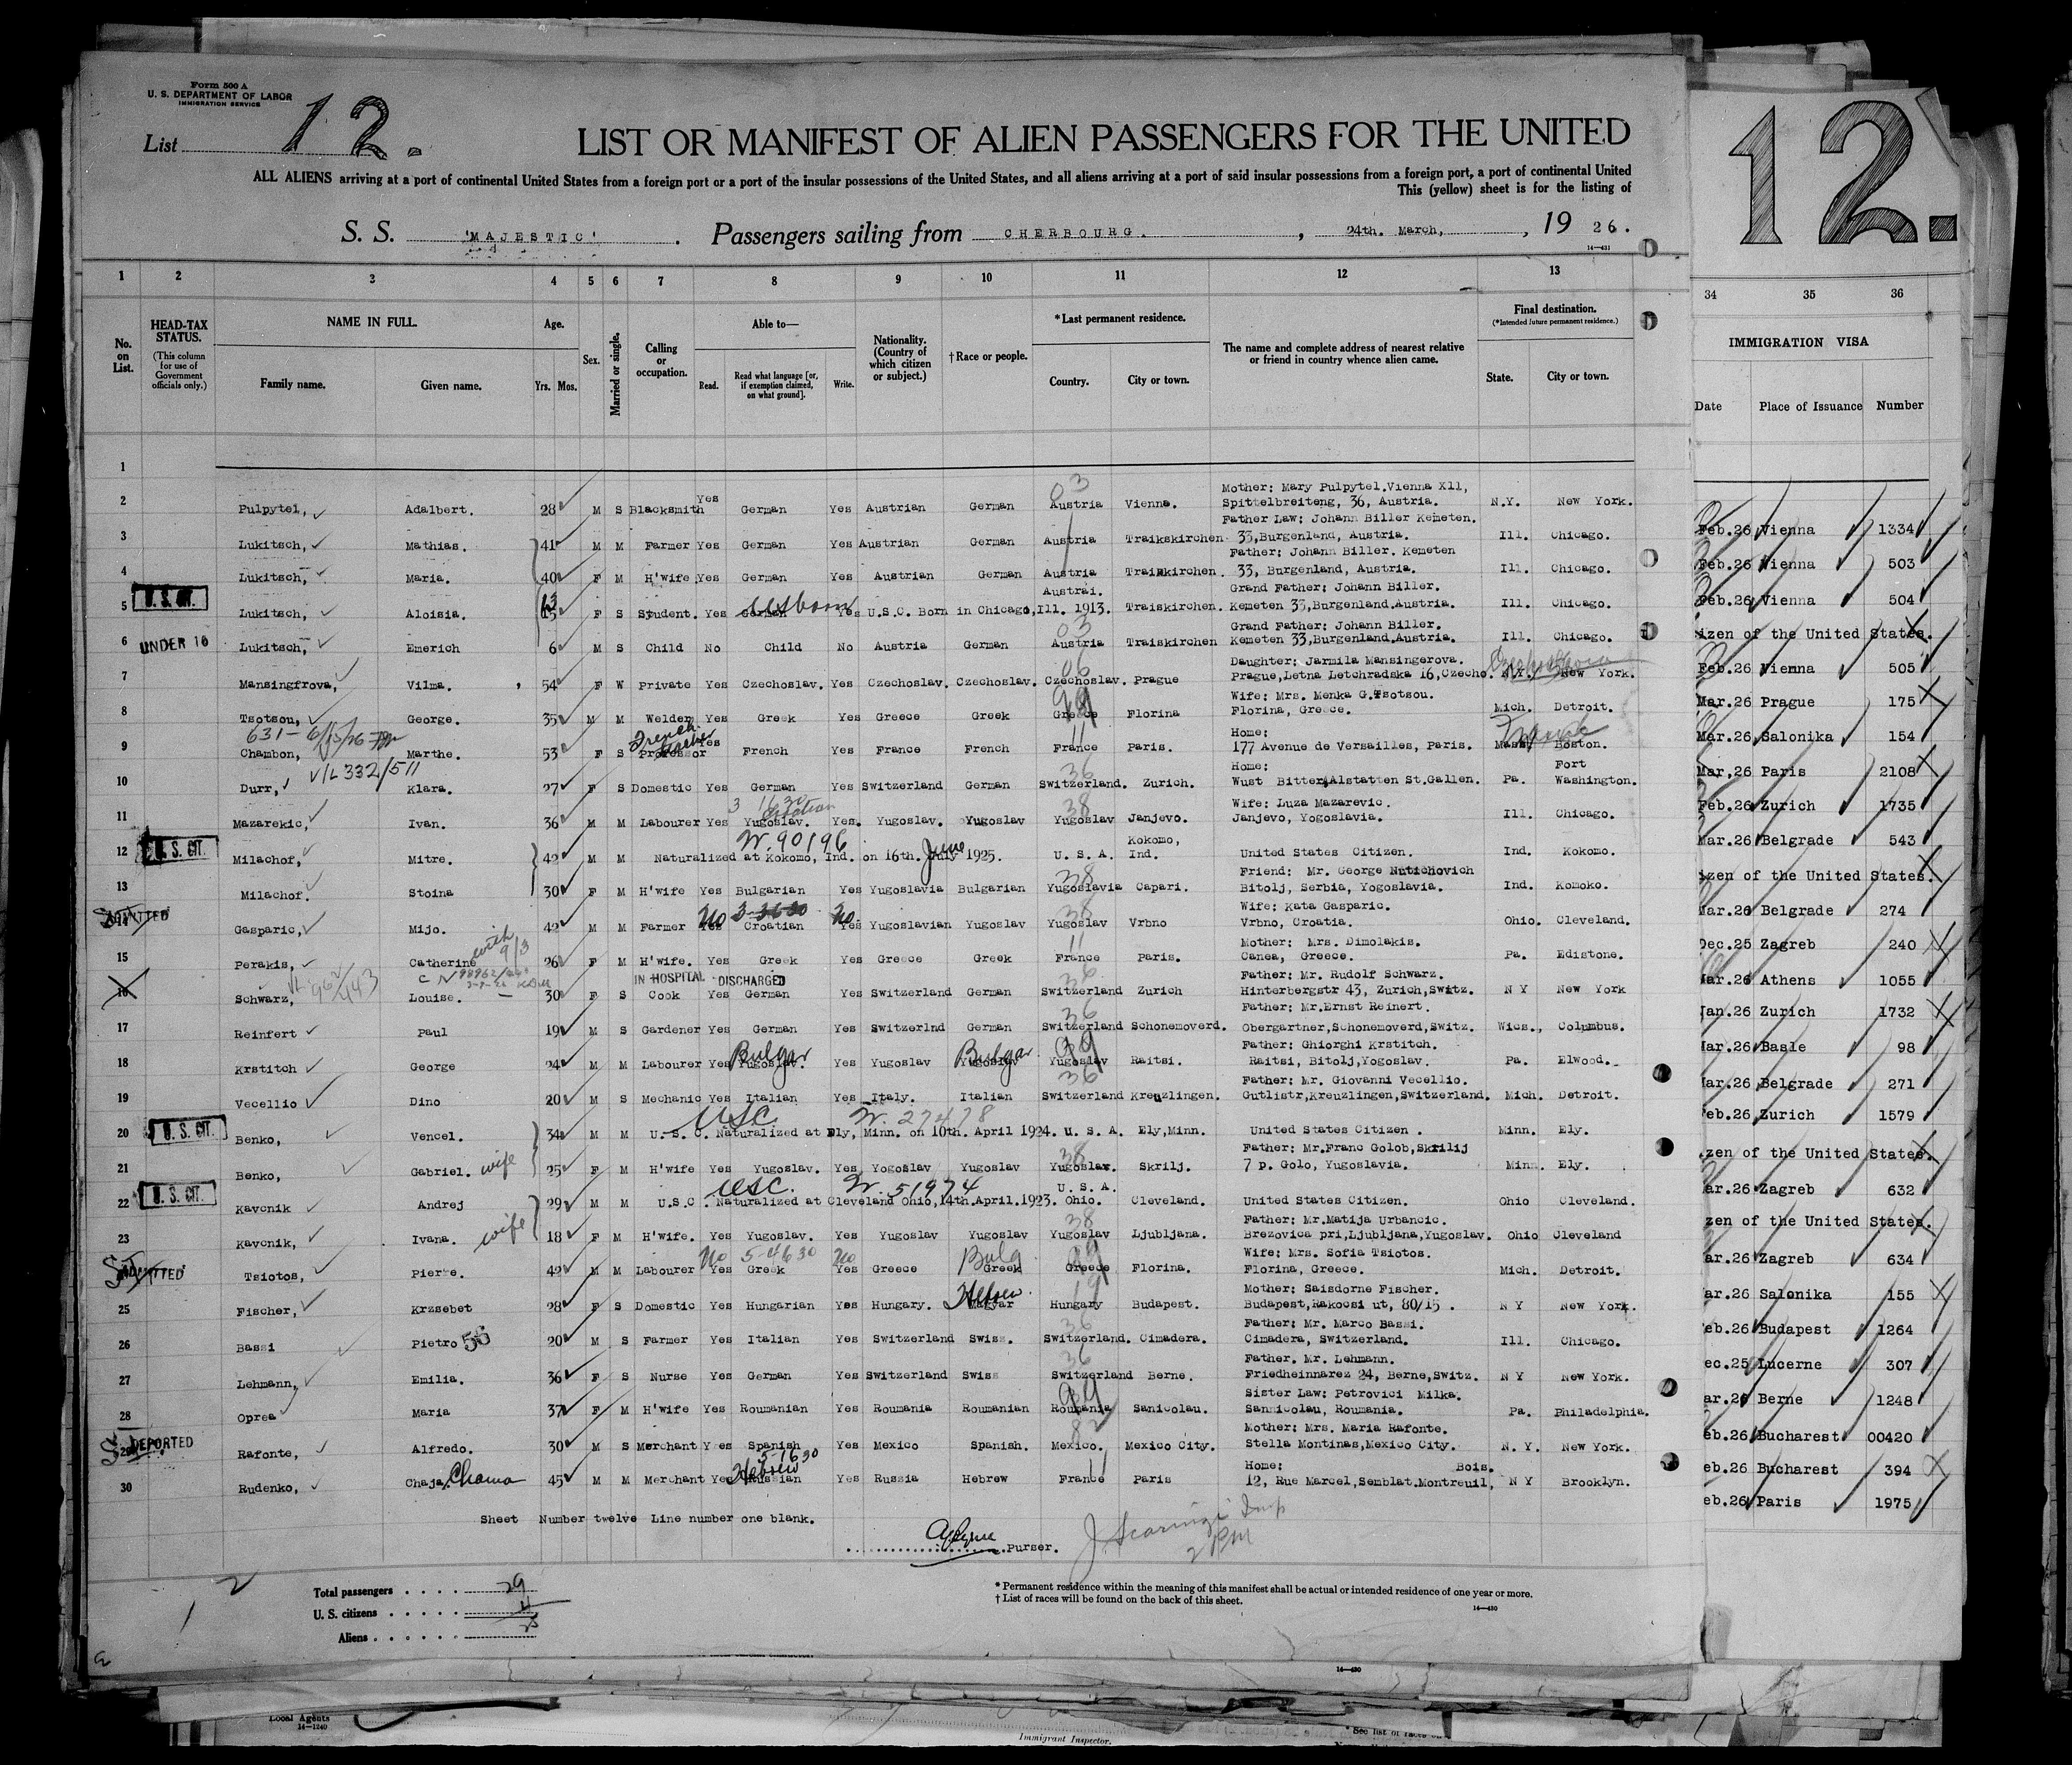 Form 500 A
U. S. DEPARTMENT OF LABOR
IMMIGRATION SERVICE
List 12.
12.
LIST OR MANIFEST OF ALIEN PASSENGERS FOR THE UNITED
ALL ALIENS arriving at a port of continental United States from a foreign port or a port of the insular possessions of the United States, and all aliens arriving at a port of said insular possessions from a foreign port, a port of continental United
This (yellow) sheet is for the listing of
S. S. 'MAJESTIC'. Passengers sailing from CHERBOURG. , 24th. March, , 1926.
14—431
1 2 3 4 5 6 7 8 9 10 11 12 13 34 35 36
No. on List.
HEAD-TAX STATUS.
(This column for use of Government officials only.)
NAME IN FULL.
Family name. Given name.
Age.
Yrs. Mos.
Sex.
Married or single.
Calling or occupation.
Able to—
Read. Read what language [or, if exemption claimed, on what ground]. Write.
Nationality. (Country of which citizen or subject.)
† Race or people.
* Last permanent residence.
Country. City or town.
The name and complete address of nearest relative or friend in country whence alien came.
Final destination.
(*Intended future permanent residence.)
State. City or town.
IMMIGRATION VISA
Date Place of Issuance Number
1
2 Pulpytel, Adalbert. 28 M S Blacksmith Yes German Yes Austrian German 03 Austria Vienna. Mother: Mary Pulpytel.Vienna X11, Spittelbreiteng, 36, Austria. N.Y. New York. Feb.26 Vienna 1334
3 Lukitsch, Mathias. 41 M M Farmer Yes German Yes Austrian German Austria Traikskirchen Father Law: Johann Biller Kemeten. 33,Burgenland, Austria. Ill. Chicago. Feb.26 Vienna 503
4 Lukitsch, Maria. 40 F M H'wife Yes German Yes Austrian German Austria Traiskirchen. Father: Johann Biller. Kemeten 33, Burgenland, Austria. Ill. Chicago. Feb.26 Vienna 504
5 U.S. CIT. Lukitsch, Aloisia. 13 F S Student. Yes German US born Yes U.S.C. Born in Chicago,Ill. 1913. Austrai. Traiskirchen. Grand Father: Johann Biller. Kemeten 33,Burgenland.Austria. Ill. Chicago. izen of the United States.
6 UNDER 16 Lukitsch, Emerich 6 M S Child No Child No Austria German 03 Austria Traiskirchen Grand Father: Johann Biller. Kemeten 33,Burgenland.Austria. Ill. Chicago. Feb.26 Vienna 505
7 Mansingfrova, Vilma. 54 F W Private Yes Czechoslav. Yes Czechoslav. Czechoslav. 06 Czechoslav. Prague Daughter: Jarmila Mansingerova. Prague,Letna Letchradska 16,Czecho. N.Y. New York. Mar.26 Prague 175
8 Tsotsou, George. 35 M M Welder Yes Greek Yes Greece Greek 99 Greece Florina Wife: Mrs. Menka G.Tsotsou. Florina, Greece. Mich. Detroit. Mar.26 Salonika 154
631- 6/15/26
9 Chambon, Marthe. 53 F S Professor French Teacher Yes French Yes France French 11 France Paris. Home: 177 Avenue de Versailles, Paris. Mass. Boston. Mar,26 Paris 2108
V/L 332/511
10 Durr, Klara. 27 F S Domestic Yes German Yes Switzerland German 36 Switzerland. Zurich. Home: Wust Bitter,Alstatten St.Gallen. Pa. Fort Washington. Feb.26 Zurich 1735
3 1630 Croatian
11 Mazarekic, Ivan. 36 M M Labourer Yes Yugoslav. Yes. Yugoslav. Yugoslav 38 Yugoslav Janjevo. Wife: Luza Mazarevic. Janjevo, Yogoslavia. Ill. Chicago. Mar.26 Belgrade 543
N. 90196
12 U.S. CIT. Milachof, Mitre. 42 M M Naturalized at Kokomo, Ind. on 16th. July June 1925. U. S. A. Kokomo, Ind. United States Citizen. Ind. Kokomo. izen of the United States.
13 Milachof. Stoina 30 F M H'wife Yes Bulgarian Yes Yugoslavia Bulgarian 38 Yugoslavia Capari. Friend: Mr. George Nutichovich Bitolj, Serbia, Yogoslavia. Ind. Komoko. Mar.26 Belgrade 274
14 ADMITTED Gasparic, Mijo. 42 M M Farmer Yes No Croatian 3-3630 Yes No. Yugoslavian Yugoslav 38 Yugoslav Vrbno Wife: Kata Gasparic. Vrbno, Croatia. Ohio. Cleveland. Dec.25 Zagreb 240
15 Perakis, Catherine 26 F M H'wife. Yes Greek Yes Greece Greek 11 France Paris. Mother: Mrs. Dimolakis. Canea, Greece. Pa. Edistone. Mar.26 Athens 1055
IN HOSPITAL DISCHARGED
16 Schwarz, Louise. 30 F S Cook Yes German Yes Switzerland German 36 Switzerland Zurich Father: Mr. Rudolf Schwarz. Hinterbergstr 43, Zurich,Switz. N Y New York Jan.26 Zurich 1732
17 Reinfert Paul 19 M S Gardener Yes German Yes Switzerlnd German 36 Switzerland Schonemoverd. Father: Mr.Ernst Reinert. Obergartner,Schonemoverd,Switz. Wics., Columbus. Mar.26 Basle 98
18 Krstitch George 24 M M Labourer Yes Yugoslav. Bulgar Yes Yugoslav Yugoslav Bulgar. 99 Yugoslav Raitsi. Father: Ghiorghi Krstitch. Raitsi, Bitolj,Yogoslav. Pa. Elwood. Mar.26 Belgrade 271
19 Vecellio Dino 20 M S Mechanic Yes Italian Yes Italy. Italian 36 Switzerland Kreuzlingen. Father: Mr. Giovanni Vecellio. Gutlistr,Kreuzlingen,Switzerland. Mich. Detroit. Feb.26 Zurich 1579
USC N. 27478
20 U.S. CIT. Benko, Vencel. 34 M M U. S. C. Naturalized at Ely, Minn. on 10th. April 1924. U. S. A. Ely,Minn. United States Citizen . Minn. Ely. izen of the United States.
21 Benko, Gabriel. wife 25 F M H'wife Yes Yugoslav. Yes Yogoslav Yugoslav 38 Yugoslav. Skrilj. Father: Mr.Franc Golob,Skrilij 7 p. Golo, Yugoslavia. Minn. Ely. Mar.26 Zagreb 632
USC. N. 51974
22 U.S. CIT. Kavcnik Andrej 29 M M U.S.C . Naturalized at Cleveland Ohio,14th.April.1923. U.S.A. Ohio. Cleveland. United States Citizen. Ohio Cleveland. zen of the United States.
23 Kavcnik, Ivana. wife 18 F M H'wife. Yes Yugoslav. Yes Yugoslav Yugoslav 38 Yugoslav Ljubljana. Father: Mr.Matija Urbancic. Brezovica pri,Ljubljana,Yugoslav. Ohio Cleveland Mar.26 Zagreb 634
ADMITTED Tsiotos, Pierre. 42 M M Labourer Yes No Greek 5-4630 Yes No Greece Greek Bulg 99 Greece Florina. Wife: Mrs. Sofia Tsiotos. Florina, Greece. Mich. Detroit. Mar.26 Salonika 155
25 Fischer, Krzsebet 28 F S Domestic Yes Hungarian Yes Hungary. Magyar Hebrew. 19 Hungary Budapest. Mother: Saisdorne Fischer. Budapest,Rakocsi ut, 80/15 . N Y New York. Feb.26 Budapest 1264
26 Bassi Pietro 56 20 M S Farmer Yes Italian Yes Switzerland Swiss. 36 Switzerland. Cimadera. Father: Mr. Marco Bassi. Cimadera, Switzerland. Ill. Chicago. Dec.25 Lucerne 307
27 Lehmann, Emilia. 36 F S Nurse Yes German Yes Switzerland Swiss 36 Switzerland Berne. Father. Mr. Lehmann. Friedheinnarez 24, Berne,Switz. N Y New York. Mar.26 Berne 1248
28 Oprea Maria 37 F M H'wife Yes Roumanian Yes Roumania Roumanian 99 Roumania Sanicolau. Sister Law: Petrovici Milka. Sannicolau, Roumania. Pa. Philadelphia. Feb.26 Bucharest 00420
29 DEPORTED Rafonte, Alfredo. 30 M S Merchant Yes Spanish Yes Mexico Spanish. 82 Mexico. Mexico City. Mother: Mrs. Maria Rafonte. Stella Montinas,Mexico City. N. Y. New York. Feb.26 Bucharest 394
5-1630
30 Rudenko, Chaja. Chama 45 M M Merchant Yes Russian Hebrew Yes Russia Hebrew 11 France Paris Home: Bois. 12, Rue Marcel,Semblat.Montreuil, N Y Brooklyn. Feb.26 Paris 1975
Sheet Number twelve Line number one blank.
Purser.
Total passengers 29
U. S. citizens 4
Aliens 25
* Permanent residence within the meaning of this manifest shall be actual or intended residence of one year or more.
† List of races will be found on the back of this sheet.
14—430
14—430
Local Agents
14—1240
Immigrant Inspector.